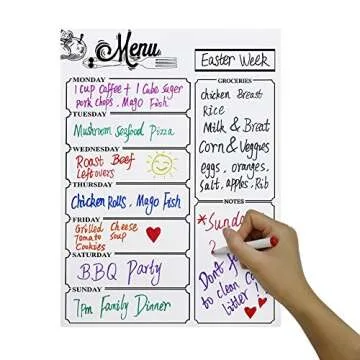 Menu
Easter Week
MONDAY
1 Cup Coffee + 1 Cube Suger
pork chops, Mago Fish
TUESDAY
Mushroom Seafood Pizza
WEDNESDAY
Roast Beef
leftovers
THURSDAY
Chicken Rolls, Mago Fish
FRIDAY
Grilled Cheese
Tomato Soup
Cookies
SATURDAY
BBQ Party
SUNDAY
7pm Family Dinner
GROCERIES
chicken Breast
Rice
Milk & Breat
Corn & Veggies
eggs, oranges,
salt, apples, Rib
NOTES
*Sunda
2
Dont fo
to clean Ca
Litter!